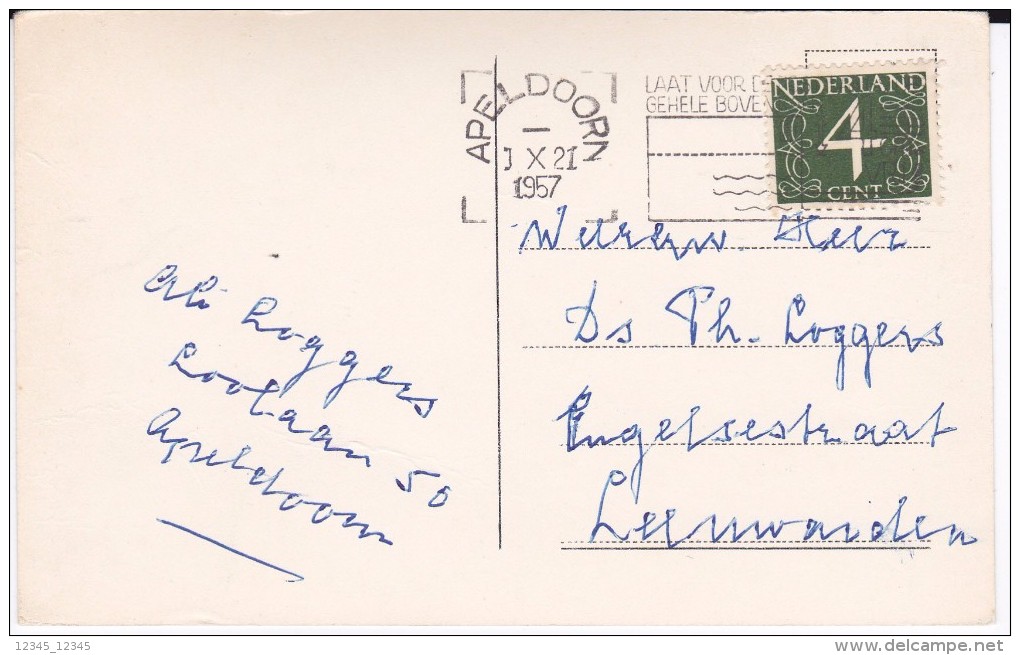 APELDOORN
1 X 21
1957
LAAT VOOR DE
GEHELE BOVEN
NEDERLAND
4
CENT
Weleerw. Heer
Ds Ph. Loggers
Engelsestraat
Leeuwarden
Ali Loggers
Loolaan 50
Apeldoorn
12345_12345
www.delcampe.net